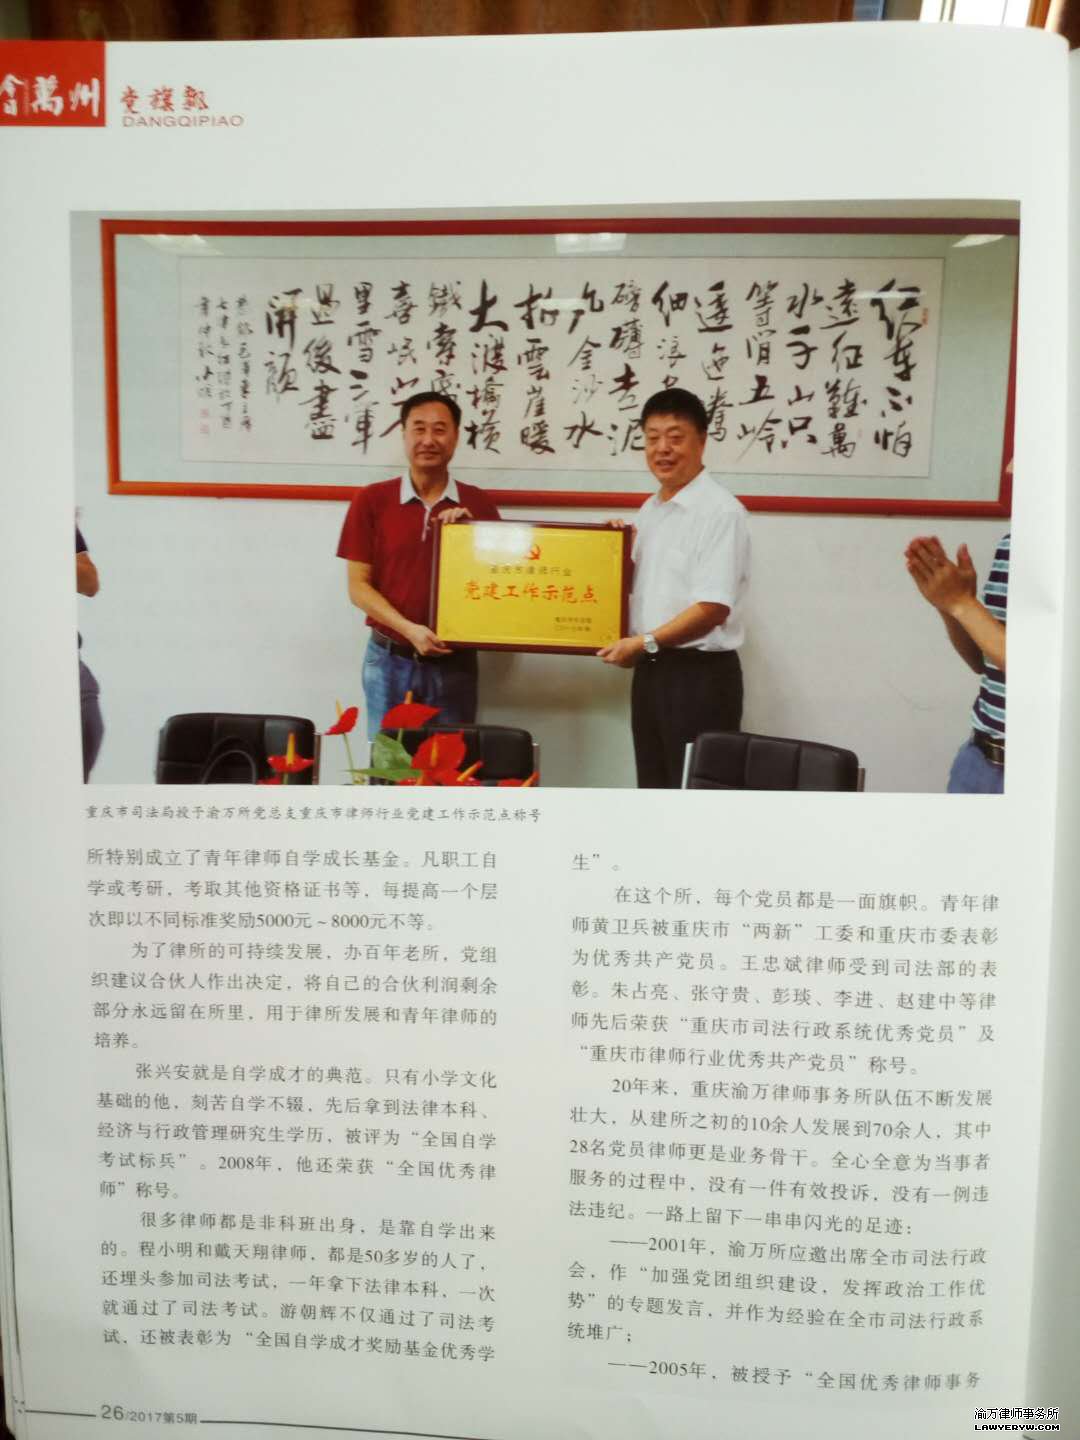 萬州
党旗飘
DANGQIPIAO
红军不怕
遠征難萬
水千山只
等閒五岭
逶迤騰
细浪
磅礴走泥
丸金沙水
拍雲崖暖
大渡橋横
鐵索寒
喜岷山
里雪三軍
過後盡
開顔
重庆市律师行业
党建工作示范点
重庆市司法局授予渝万所党总支重庆市律师行业党建工作示范点称号
所特别成立了青年律师自学成长基金。凡职工自
学或考研，考取其他资格证书等，每提高一个层
次即以不同标准奖励5000元～8000元不等。
为了律所的可持续发展，办百年老所，党组
织建议合伙人作出决定，将自己的合伙利润剩余
部分永远留在所里，用于律所发展和青年律师的
培养。
张兴安就是自学成才的典范。只有小学文化
基础的他，刻苦自学不辍，先后拿到法律本科、
经济与行政管理研究生学历，被评为“全国自学
考试标兵”。2008年，他还荣获“全国优秀律
师”称号。
很多律师都是非科班出身，是靠自学出来
的。程小明和戴天翔律师，都是50多岁的人了，
还埋头参加司法考试，一年拿下法律本科，一次
就通过了司法考试。游朝辉不仅通过了司法考
试，还被表彰为“全国自学成才奖励基金优秀学
生”。
在这个所，每个党员都是一面旗帜。青年律
师黄卫兵被重庆市“两新”工委和重庆市委表彰
为优秀共产党员。王忠斌律师受到司法部的表
彰。朱占亮、张守贵、彭琰、李进、赵建中等律
师先后荣获“重庆市司法行政系统优秀党员”及
“重庆市律师行业优秀共产党员”称号。
20年来，重庆渝万律师事务所队伍不断发展
壮大，从建所之初的10余人发展到70余人，其中
28名党员律师更是业务骨干。全心全意为当事者
服务的过程中，没有一件有效投诉，没有一例违
法违纪。一路上留下一串串闪光的足迹：
——2001年，渝万所应邀出席全市司法行政
会，作“加强党团组织建设，发挥政治工作优
势”的专题发言，并作为经验在全市司法行政系
统堆广；
——2005年，被授予“全国优秀律师事务
26/2017第5期
渝万律师事务所
LAWYERYW.COM